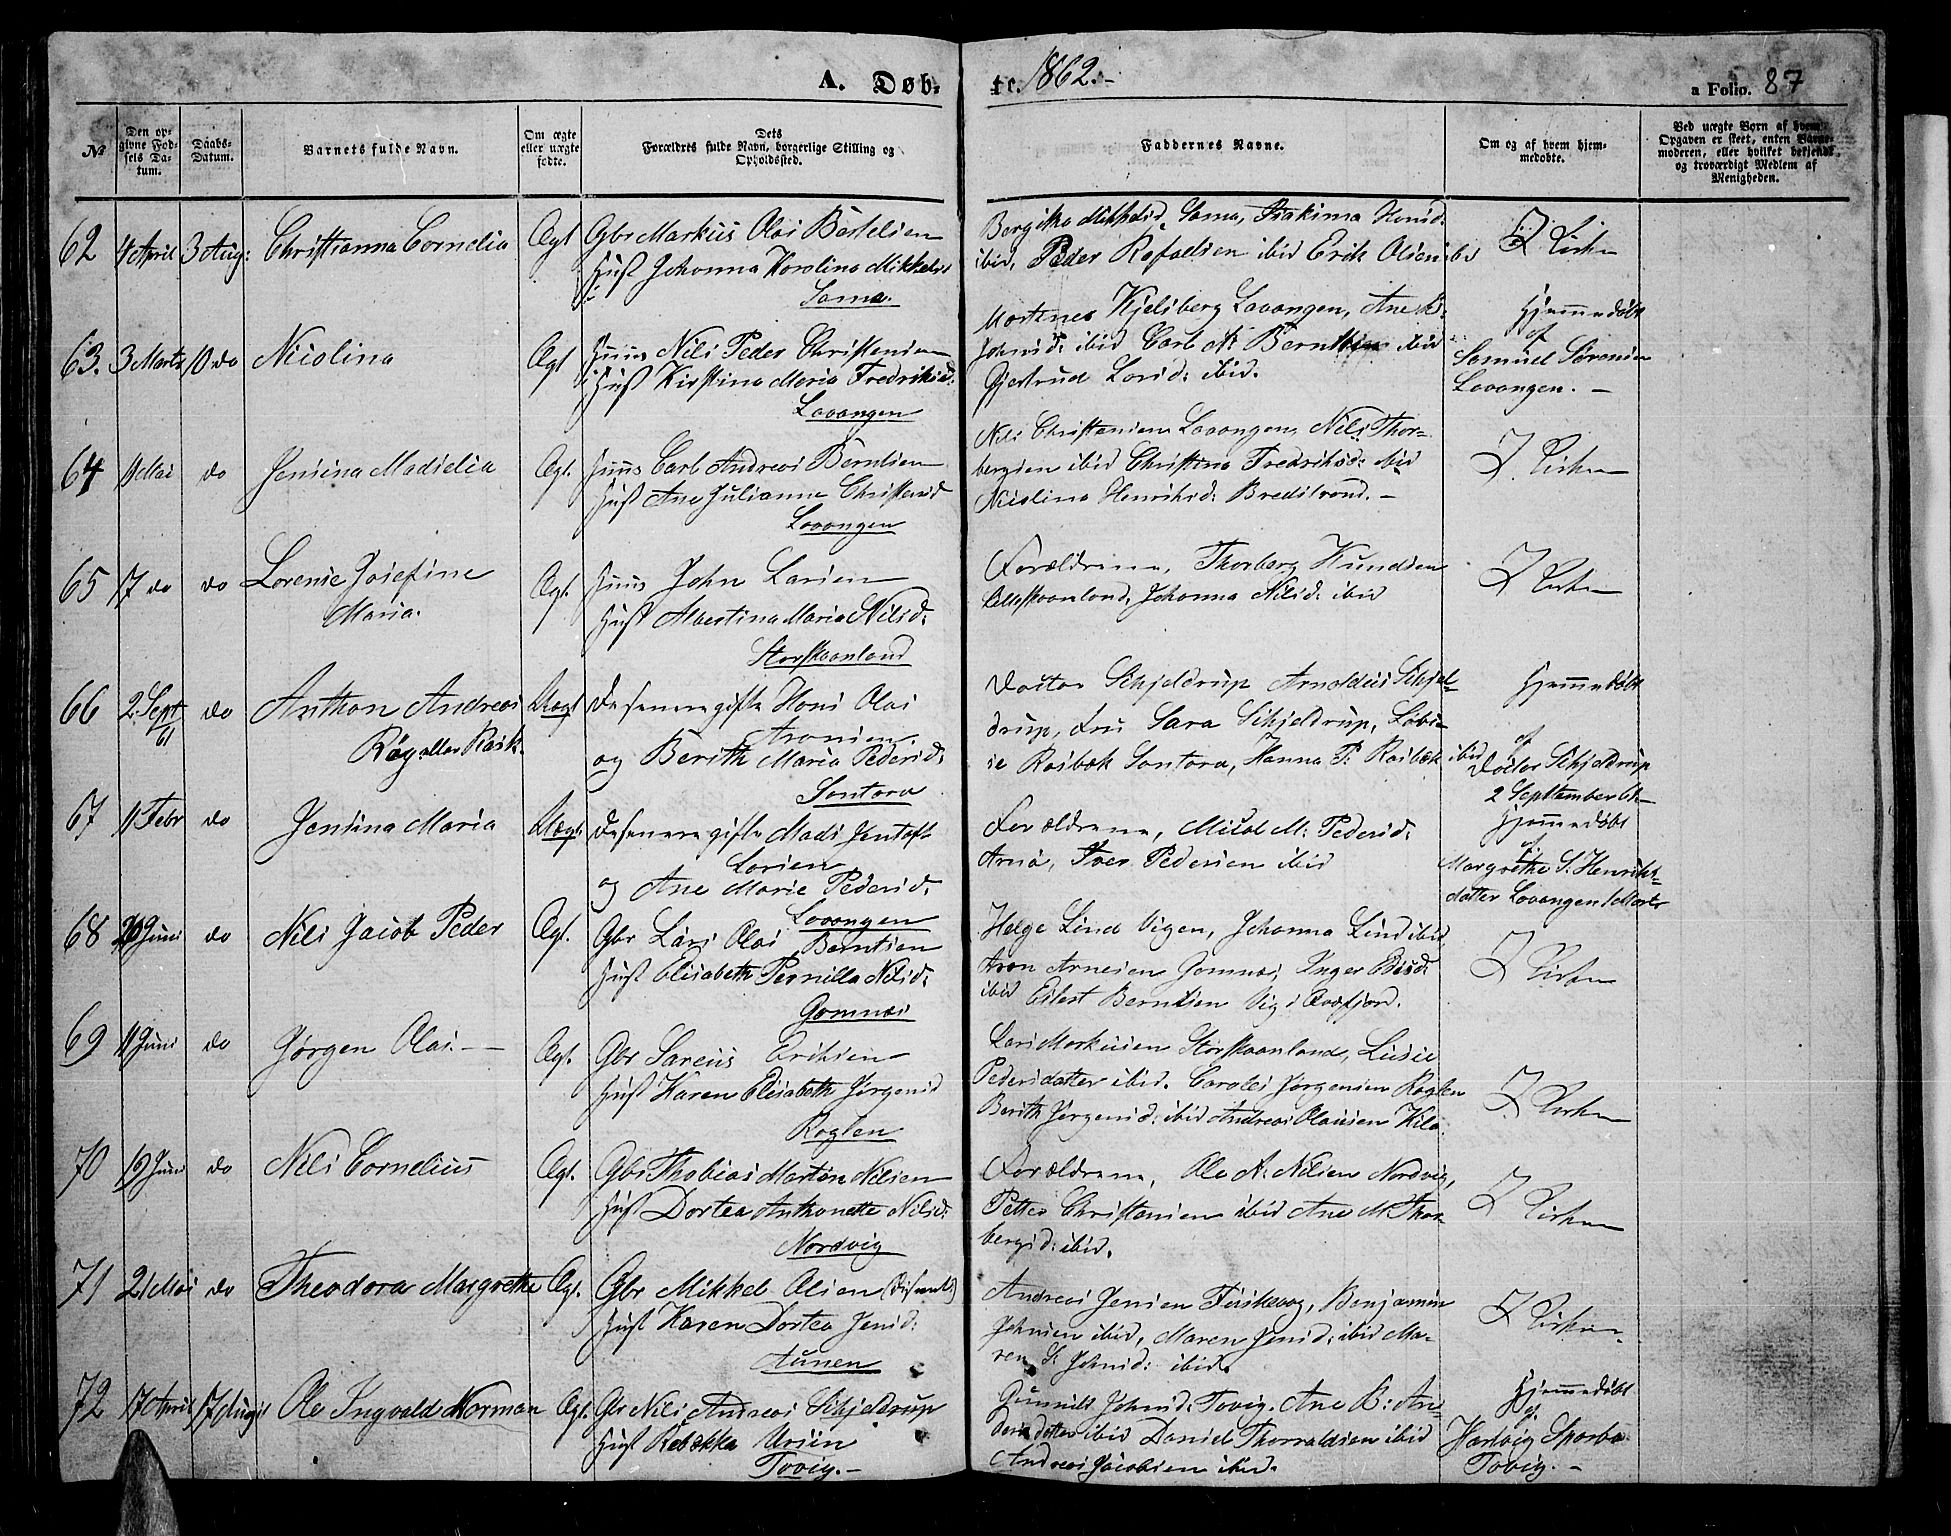 A. Døb-
te. 1862.-
a Folio. 87
No
Den op-
givne Fød-
sels Da-
tum.
Daabs-
Datum.
Barnets fulde Navn.
Om ægte
eller uægte
fødte.
Dets
Forældres fulde Navn, borgerlige Stilling og
Opholdssted.
Faddernes Navne.
Om og af hvem hjem-
medøbte.
Ved uægte Børn af hvem
Opgaven er skeet, enten Barne-
moderen, eller hvilket bekjendt
og troværdigt Medlem af
Menigheden.
62 4 April 3 Aug: Christianna Cornelia Ægt Gbr Markus Olai
Hust Johanna Karolina Mikkelsd
Sama.
Mikkelsd. Sama,
ibid, Peder Rafaelsen ibid Erik Olsen ibd
I Kirken
63. 3 Marts do Nicolina Ægt Huus Nils Peder Christensen
Hust Kirstina Maria Fredriksd.
Lavangen
Kjelsberg Lavangen, Ane
Johnsd: ibid Carl A: Berntsen ibid
Gjertrud Larsd: ibid.
Hjemmedøbt
af
Samuel Sørensen
Lavangen. -
64 Mai do Jensina Madielia Ægt. Huus Carl Andreas Berntsen
Hust Ane Julianna Christensd
Lavangen
Nils Christensen Lavangen, Nils Thor-
bergsen ibid Christina Fredriksd: ibid
Nicolina Henriksd: Bredstrand. -
I Kirken
65 17 do do Lorense Josefine
Maria.
Ægt. Huus John Larsen
Hust Albertina Maria Nilsd:
Storskaanland
Forældrene, Thorberg Knudsen
Johanna Nilsd: ibid
I Kirken
66 2: Sept
61
do Anthon Andreas
Røg eller Rask.
Uægt Desenere gifte Hans Olai
Aronsen
og Berith Maria Pedersd:
Santora
Doctor Schjeldrup Arnoldus Schjel-
drup, Fru Sara Schjeldrup,
Rosbæk Santora, Hanna P: Rosbæk ibid
Hjemmedøbt
af
Doctor Schjeldrup
2 September 61 -
67 11 Febr do Jensina Maria Uægt Desenere gifte Mads Jentoft
Larsen
og Ane Marie Pedersd.
Lavangen
Forældrene, M: Pedersd:
Arnø, Iver Pedersen ibid
Hjemmedøbt
af
Margrethe S. Henriks-
datter Lavangen
68 Juni do Nils Jacob Peder Ægt. Gbr Lars Olai Berntsen
Hust Elisabeth Pernilla Nilsd:
Gomnæs
Helge Lind Vigen, Johanna Lind ibid
Aron Arnesen Gomnæs, Inger
ibid Eilert Berntsen Vig i Qvæfjord.
I Kirken
69 11 Juni do Jørgen Olai. - - Ægt. Gbr Sareus Eriksen
Hust Karen Elisabeth Jørgensd
Roglen
Lars Markusen Storskaanland,
Pedersdatter ibid. Jørgensen Roglen
Berith Jørgensd: ibid Andreas Olausen Kilo
I Kirken
70 19 Juni do Nils Cornelius Ægt. Gbr Thobias Martin Nilsen
Hust Dortea Anthonette Nilsd:
Nordvig
Forældrene, Ole A: Nilsen Nordvig,
Petter Christensen ibid Ane M: Thor-
bergsd: ibid.
I Kirken
71 2 Mai do Theodora Margrethe Ægt. Gbr Mikkel Olsen
Hust Karen Dortea Jensd:
Aunen
Andreas Jensen Finskevog, Benjamin
Johnsen ibid, Maren Jensd: ibid Ma-
ren S. Johnsd: ibid.
I Kirken
72 17 April 17 August Ole Ingvald Norman Ægt. Gbr Nils Andreas Schjeldrup
Hust Rebekka Ursin
Tovig. -
Gunnild Johnsd: Tovig. Ane B: An-
dersdatter ibid Daniel Thorvaldsen ibid
Andreas Jacobsen ibid.
Hjemmedøbt
af
Hartvig Sparbo
Tovig. -